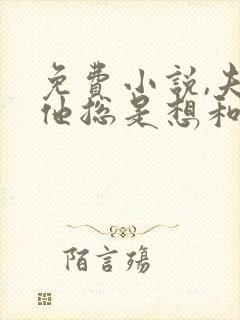 免費小説,夫
他總是想和
陌言殤